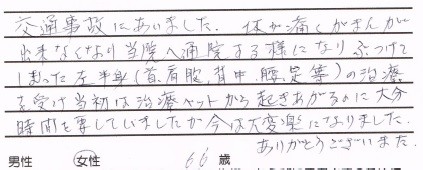 交通事故にあいました。体が痛くがまんが
出来なくなり当院へ通院する様になりぶつけて
しまった左半身(首、肩腕、背中、腰、足等)の治療
を受け当初は治療ベットから起きあがるのに大分
時間を要していましたが今は大変楽になりました。
ありがとうございました。
男性 女性 66 歳